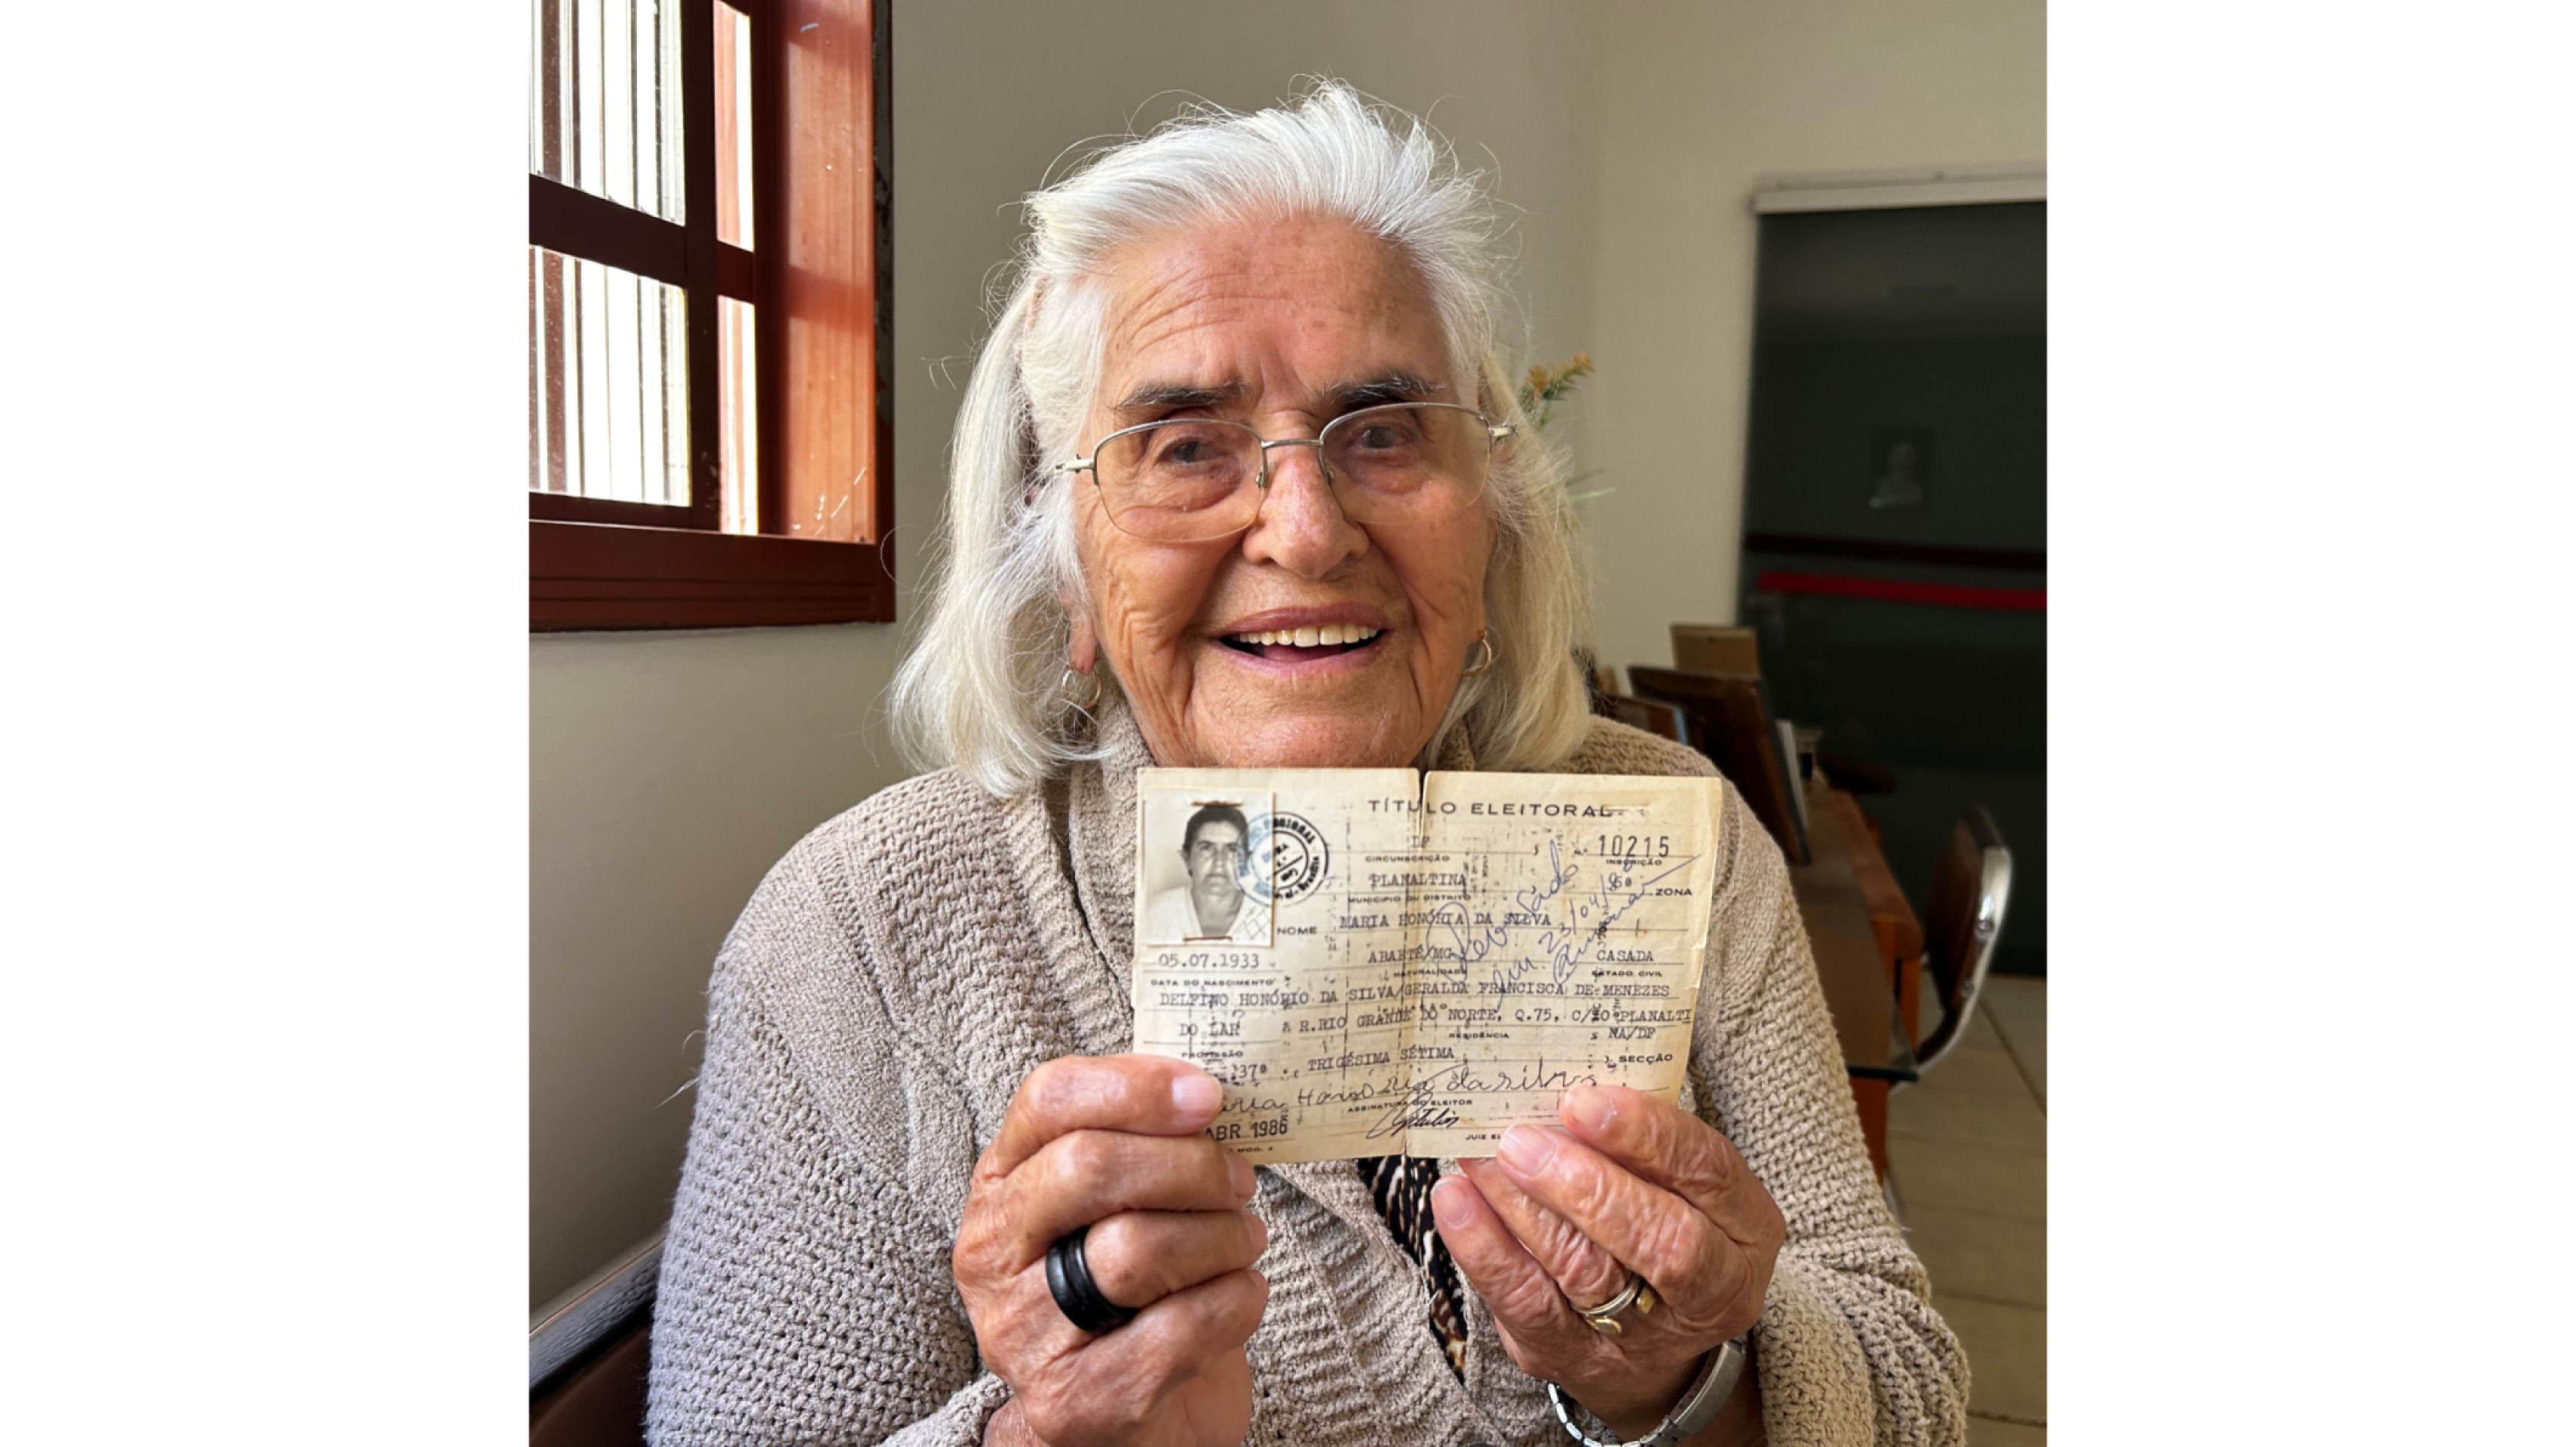 TÍTULO ELEITORAL
DF 10215
CIRCUNSCRIÇÃO INSCRIÇÃO
PLANALTINA ZONA
MUNICÍPIO OU DISTRITO
NOME MARIA HONÓRIA DA SILVA
Revisado
em 23/04/86
05.07.1933 ABAETÉ/MG CASADA
DATA DO NASCIMENTO NATURALIDADE ESTADO CIVIL
DELFINO HONÓRIO DA SILVA/GERALDA FRANCISCA DE MENEZES
DO LAR R.RIO GRANDE DO NORTE, Q.75, C/20 PLANALTI
PROFISSÃO RESIDÊNCIA NA/DF
37ª TRIGÉSIMA SÉTIMA SECÇÃO
Honoria da silva
ASSINATURA DO ELEITOR
ABR 1986
JUIZ
MOD. 4